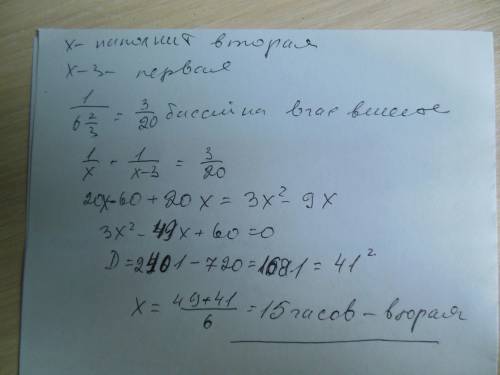 x- наполнит вторая
x-3- первая
1/(6 2/3) = 3/20 бассейна в час вместе
1/x - 1/(x-3) = 3/20
20x-60+20x = 3x²-9x
3x²-49x+60=0
D=2401-720=1681=41²
x = (49+41)/6 = 15 часов - вторая